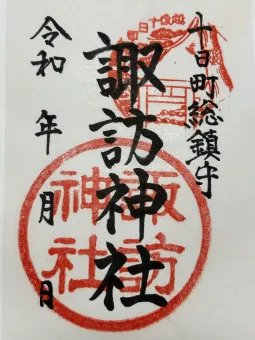 十日町総鎮守
諏訪神社
令和 年 月 日
諏訪
神社